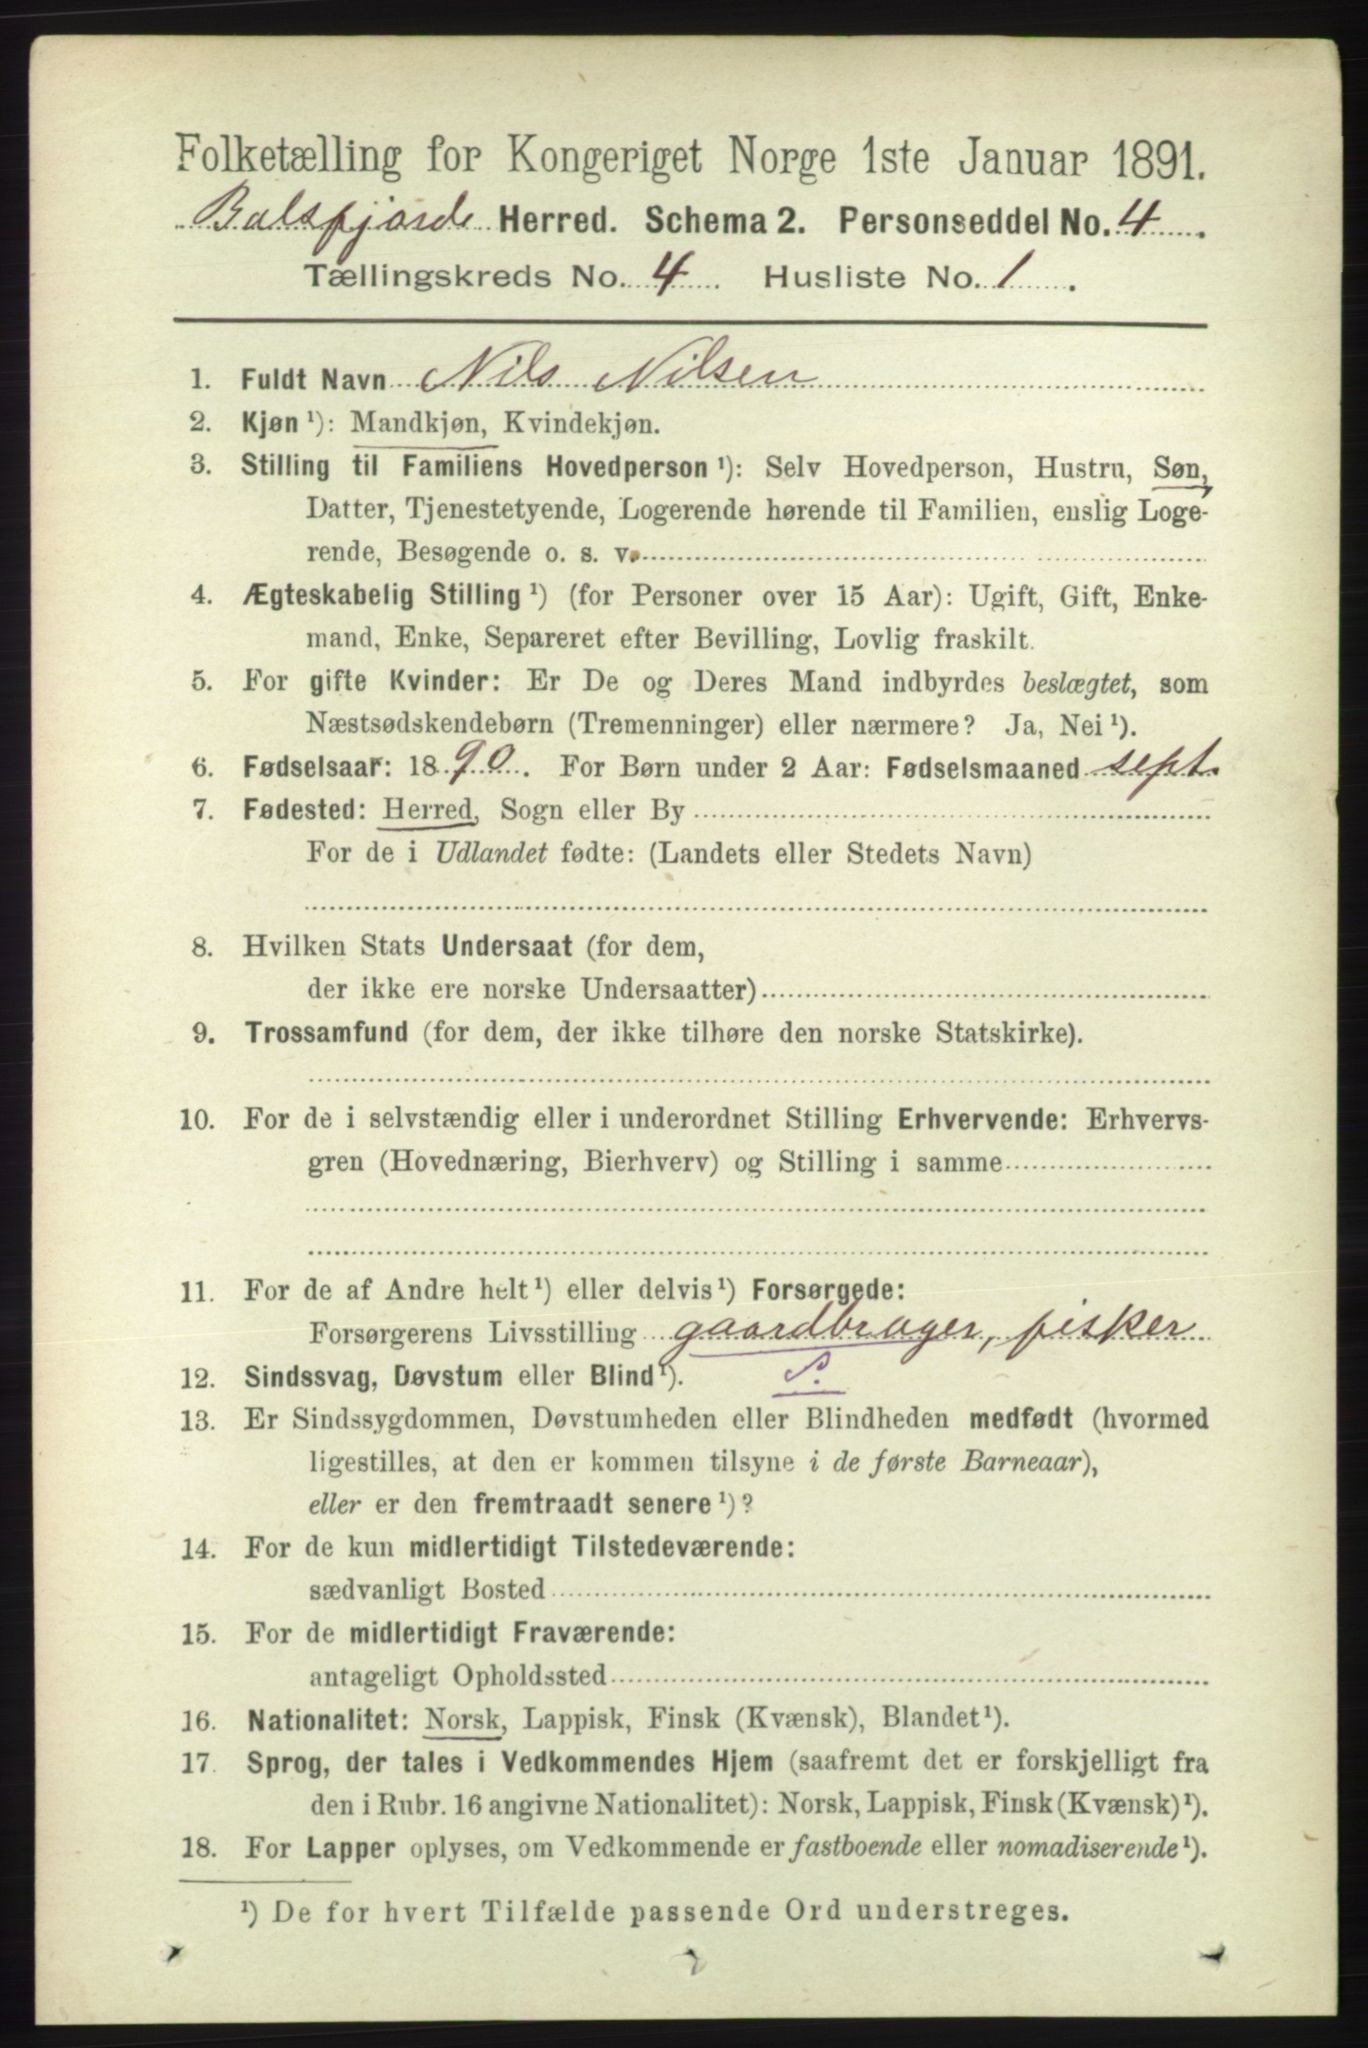 Folketælling for Kongeriget Norge 1ste Januar 1891.
Balsfjord Herred. Schema 2. Personseddel No. 4.
Tællingskreds No. 4 Husliste No. 1.
1. Fuldt Navn Nils Nilsen
2. Kjøn ¹): Mandkjøn, Kvindekjøn.
3. Stilling til Familiens Hovedperson ¹): Selv Hovedperson, Hustru, Søn,
Datter, Tjenestetyende, Logerende hørende til Familien, enslig Loge-
rende, Besøgende o. s. v.
4. Ægteskabelig Stilling ¹) (for Personer over 15 Aar): Ugift, Gift, Enke-
mand, Enke, Separeret efter Bevilling, Lovlig fraskilt.
5. For gifte Kvinder: Er De og Deres Mand indbyrdes beslægtet, som
Næstsødskendebørn (Tremenninger) eller nærmere? Ja, Nei ¹).
6. Fødselsaar: 1890. For Børn under 2 Aar: Fødselsmaaned sept.
7. Fødested: Herred, Sogn eller By
For de i Udlandet fødte: (Landets eller Stedets Navn)
8. Hvilken Stats Undersaat (for dem,
der ikke ere norske Undersaatter)
9. Trossamfund (for dem, der ikke tilhøre den norske Statskirke).
10. For de i selvstændig eller i underordnet Stilling Erhvervende: Erhvervs-
gren (Hovednæring, Bierhverv) og Stilling i samme
11. For de af Andre helt ¹) eller delvis ¹) Forsørgede:
Forsørgerens Livsstilling gaardbruger, fisker
12. Sindssvag, Døvstum eller Blind ¹). S.
13. Er Sindssygdommen, Døvstumheden eller Blindheden medfødt (hvormed
ligestilles, at den er kommen tilsyne i de første Barneaar),
eller er den fremtraadt senere ¹)?
14. For de kun midlertidigt Tilstedeværende:
sædvanligt Bosted
15. For de midlertidigt Fraværende:
antageligt Opholdssted
16. Nationalitet: Norsk, Lappisk, Finsk (Kvænsk), Blandet ¹).
17. Sprog, der tales i Vedkommendes Hjem (saafremt det er forskjelligt fra
den i Rubr. 16 angivne Nationalitet): Norsk, Lappisk, Finsk (Kvænsk) ¹).
18. For Lapper oplyses, om Vedkommende er fastboende eller nomadiserende ¹).
¹) De for hvert Tilfælde passende Ord understreges.